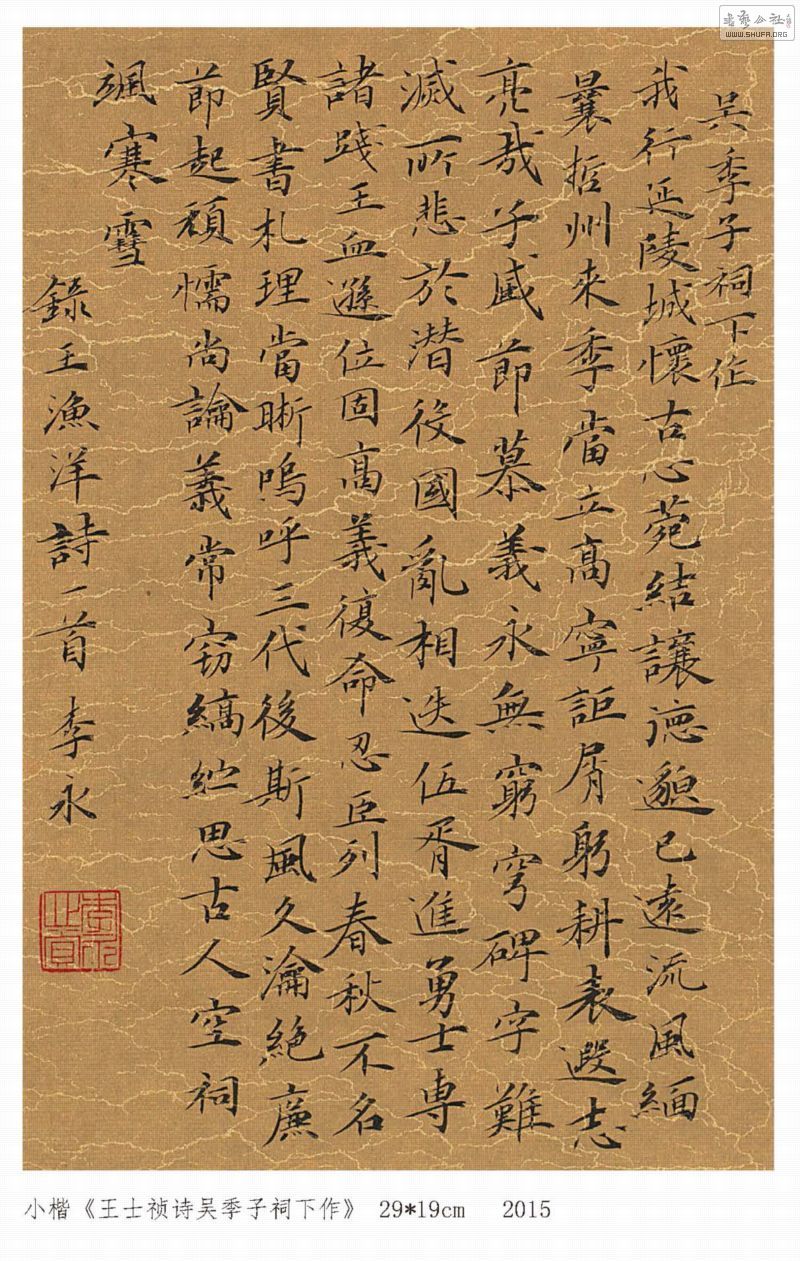 書藝公社
WWW.SHUFA.ORG
吳季子祠下作
我行延陵城懷古心菀結讓德邈已遠流風緬
曩哲州來季當立高寧詎屑躬耕表遐志
亮哉子臧節慕義永無窮穹碑字難
滅所悲於潛役國亂相迭伍胥進勇士專
諸踐王血遜位固高義復命忍臣列春秋不名
賢書札理當晰嗚呼三代後斯風久淪絕廉
節起頑懦尚論義常窃縞紵思古人空祠
颯寒雪
錄王漁洋詩一首 李永
小楷《王士祯诗吴季子祠下作》 29*19cm 2015